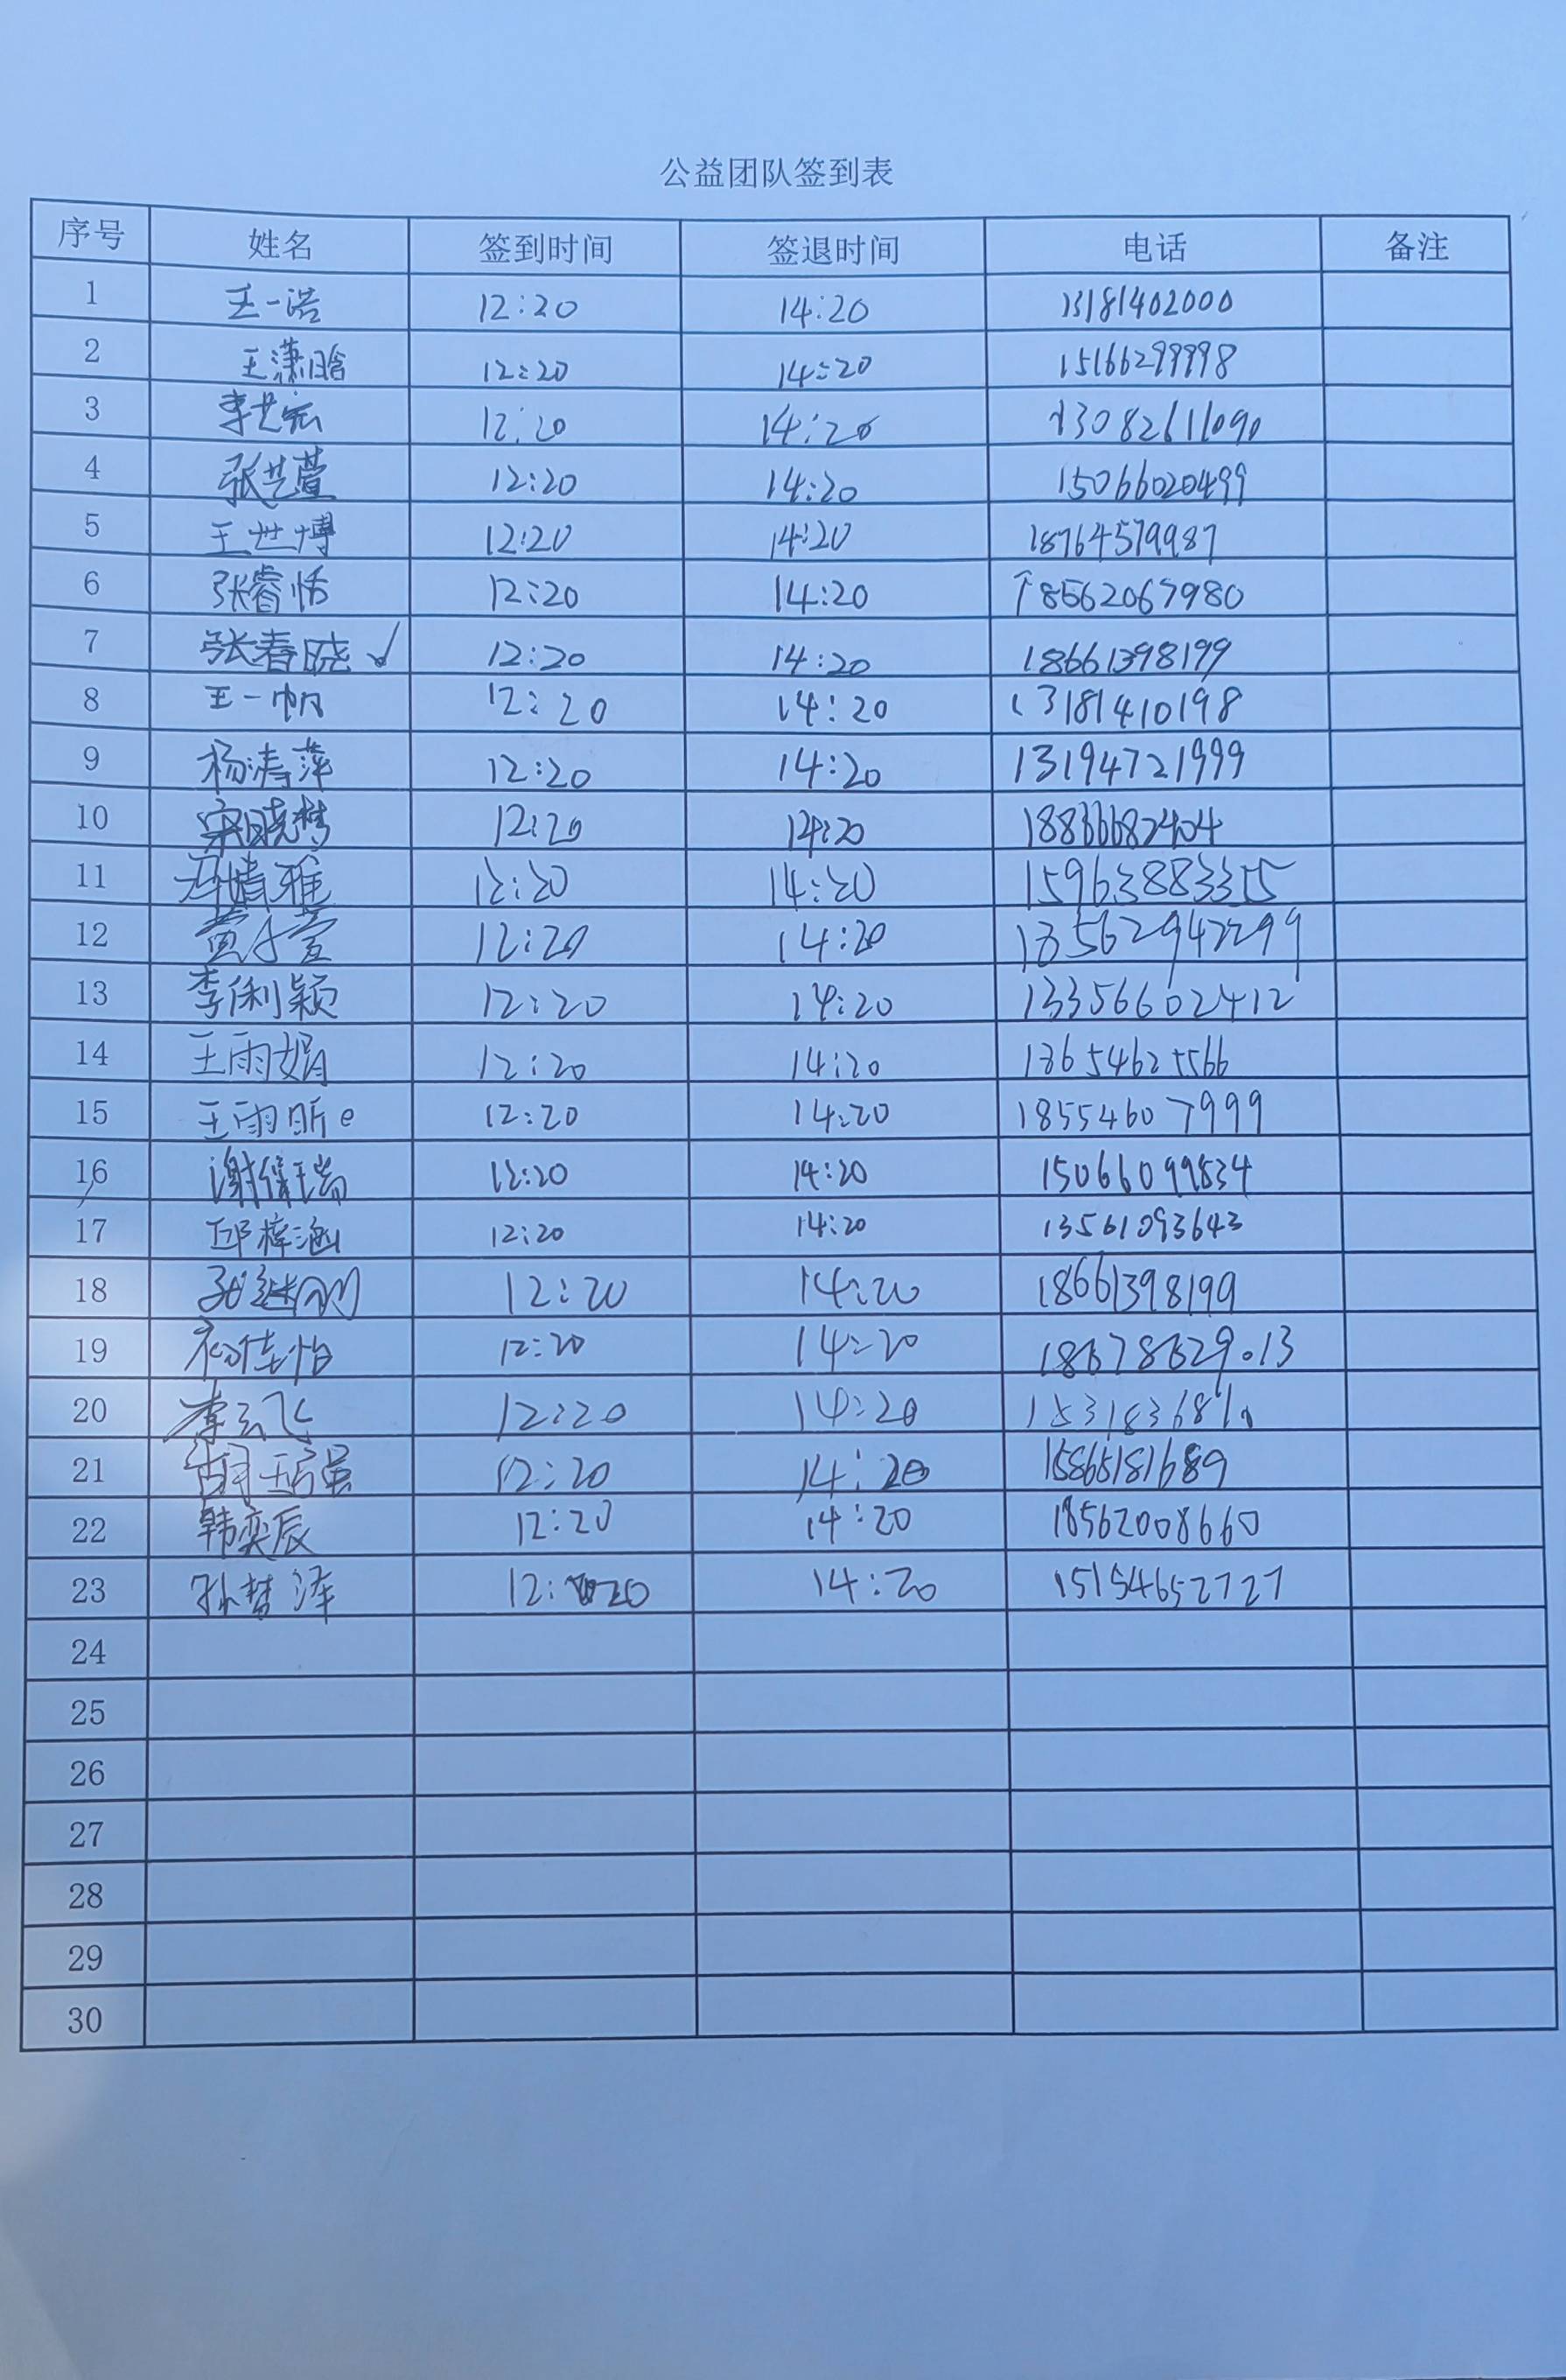 公益团队签到表
序号 姓名 签到时间 签退时间 电话 备注
1 王一浩 12:20 14:20 13181402000
2 王潇晗 12:20 14:20 15166299998
3 李艺宏 12:20 14:20 13082611090
4 张艺萱 12:20 14:20 15066020499
5 王世博 12:20 14:20 18764579987
6 张睿恬 12:20 14:20 18562067980
7 张春晓√ 12:20 14:20 18661398199
8 王一帆 12:20 14:20 13181410198
9 杨涛萍 12:20 14:20 13194721999
10 宋晓梦 12:20 14:20
11 婧雅 12:20 14:20 15963883355
12 黄子萱 12:20 14:20
13 李俐颖 12:20 14:20 13356602412
14 王雨娟 12:20 14:20 13654625566
15 王雨昕 12:20 14:20 18554607999
16 谢继瑞 12:20 14:20 15066099834
17 邱梓涵 12:20 14:20 13561093643
18 12:20 14:20 18661398199
19 初佳怡 12:20 14:20
20 李云飞 12:20 14:20
21 12:20 14:20 15865181689
22 韩奕辰 12:20 14:20 18562008660
23 孙梦泽 12:20 14:20 15154652727
24
25
26
27
28
29
30